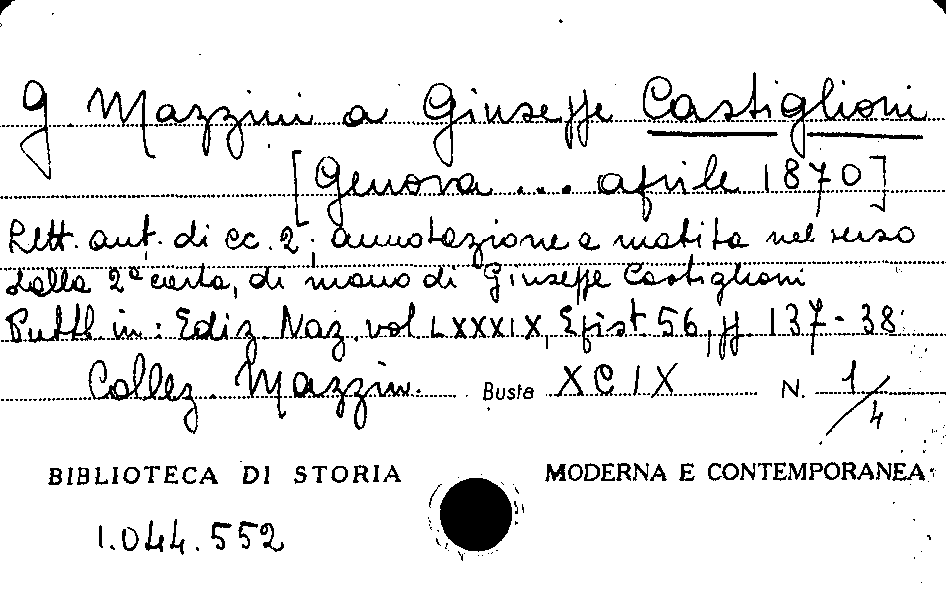 G. Mazzini a Giuseppe Castiglioni
[Genova ... aprile 1870]
Lett. aut. di cc. 2; annotazione a matita nel verso
della 2ª carta, di mano di Giuseppe Castiglioni
Pubbl. in: Ediz. Naz. vol. LXXXIX, Epist. 56, pp. 137-38.
Collez. Mazzin. Busta XCIX N. 1/4
BIBLIOTECA DI STORIA MODERNA E CONTEMPORANEA
1.044.552